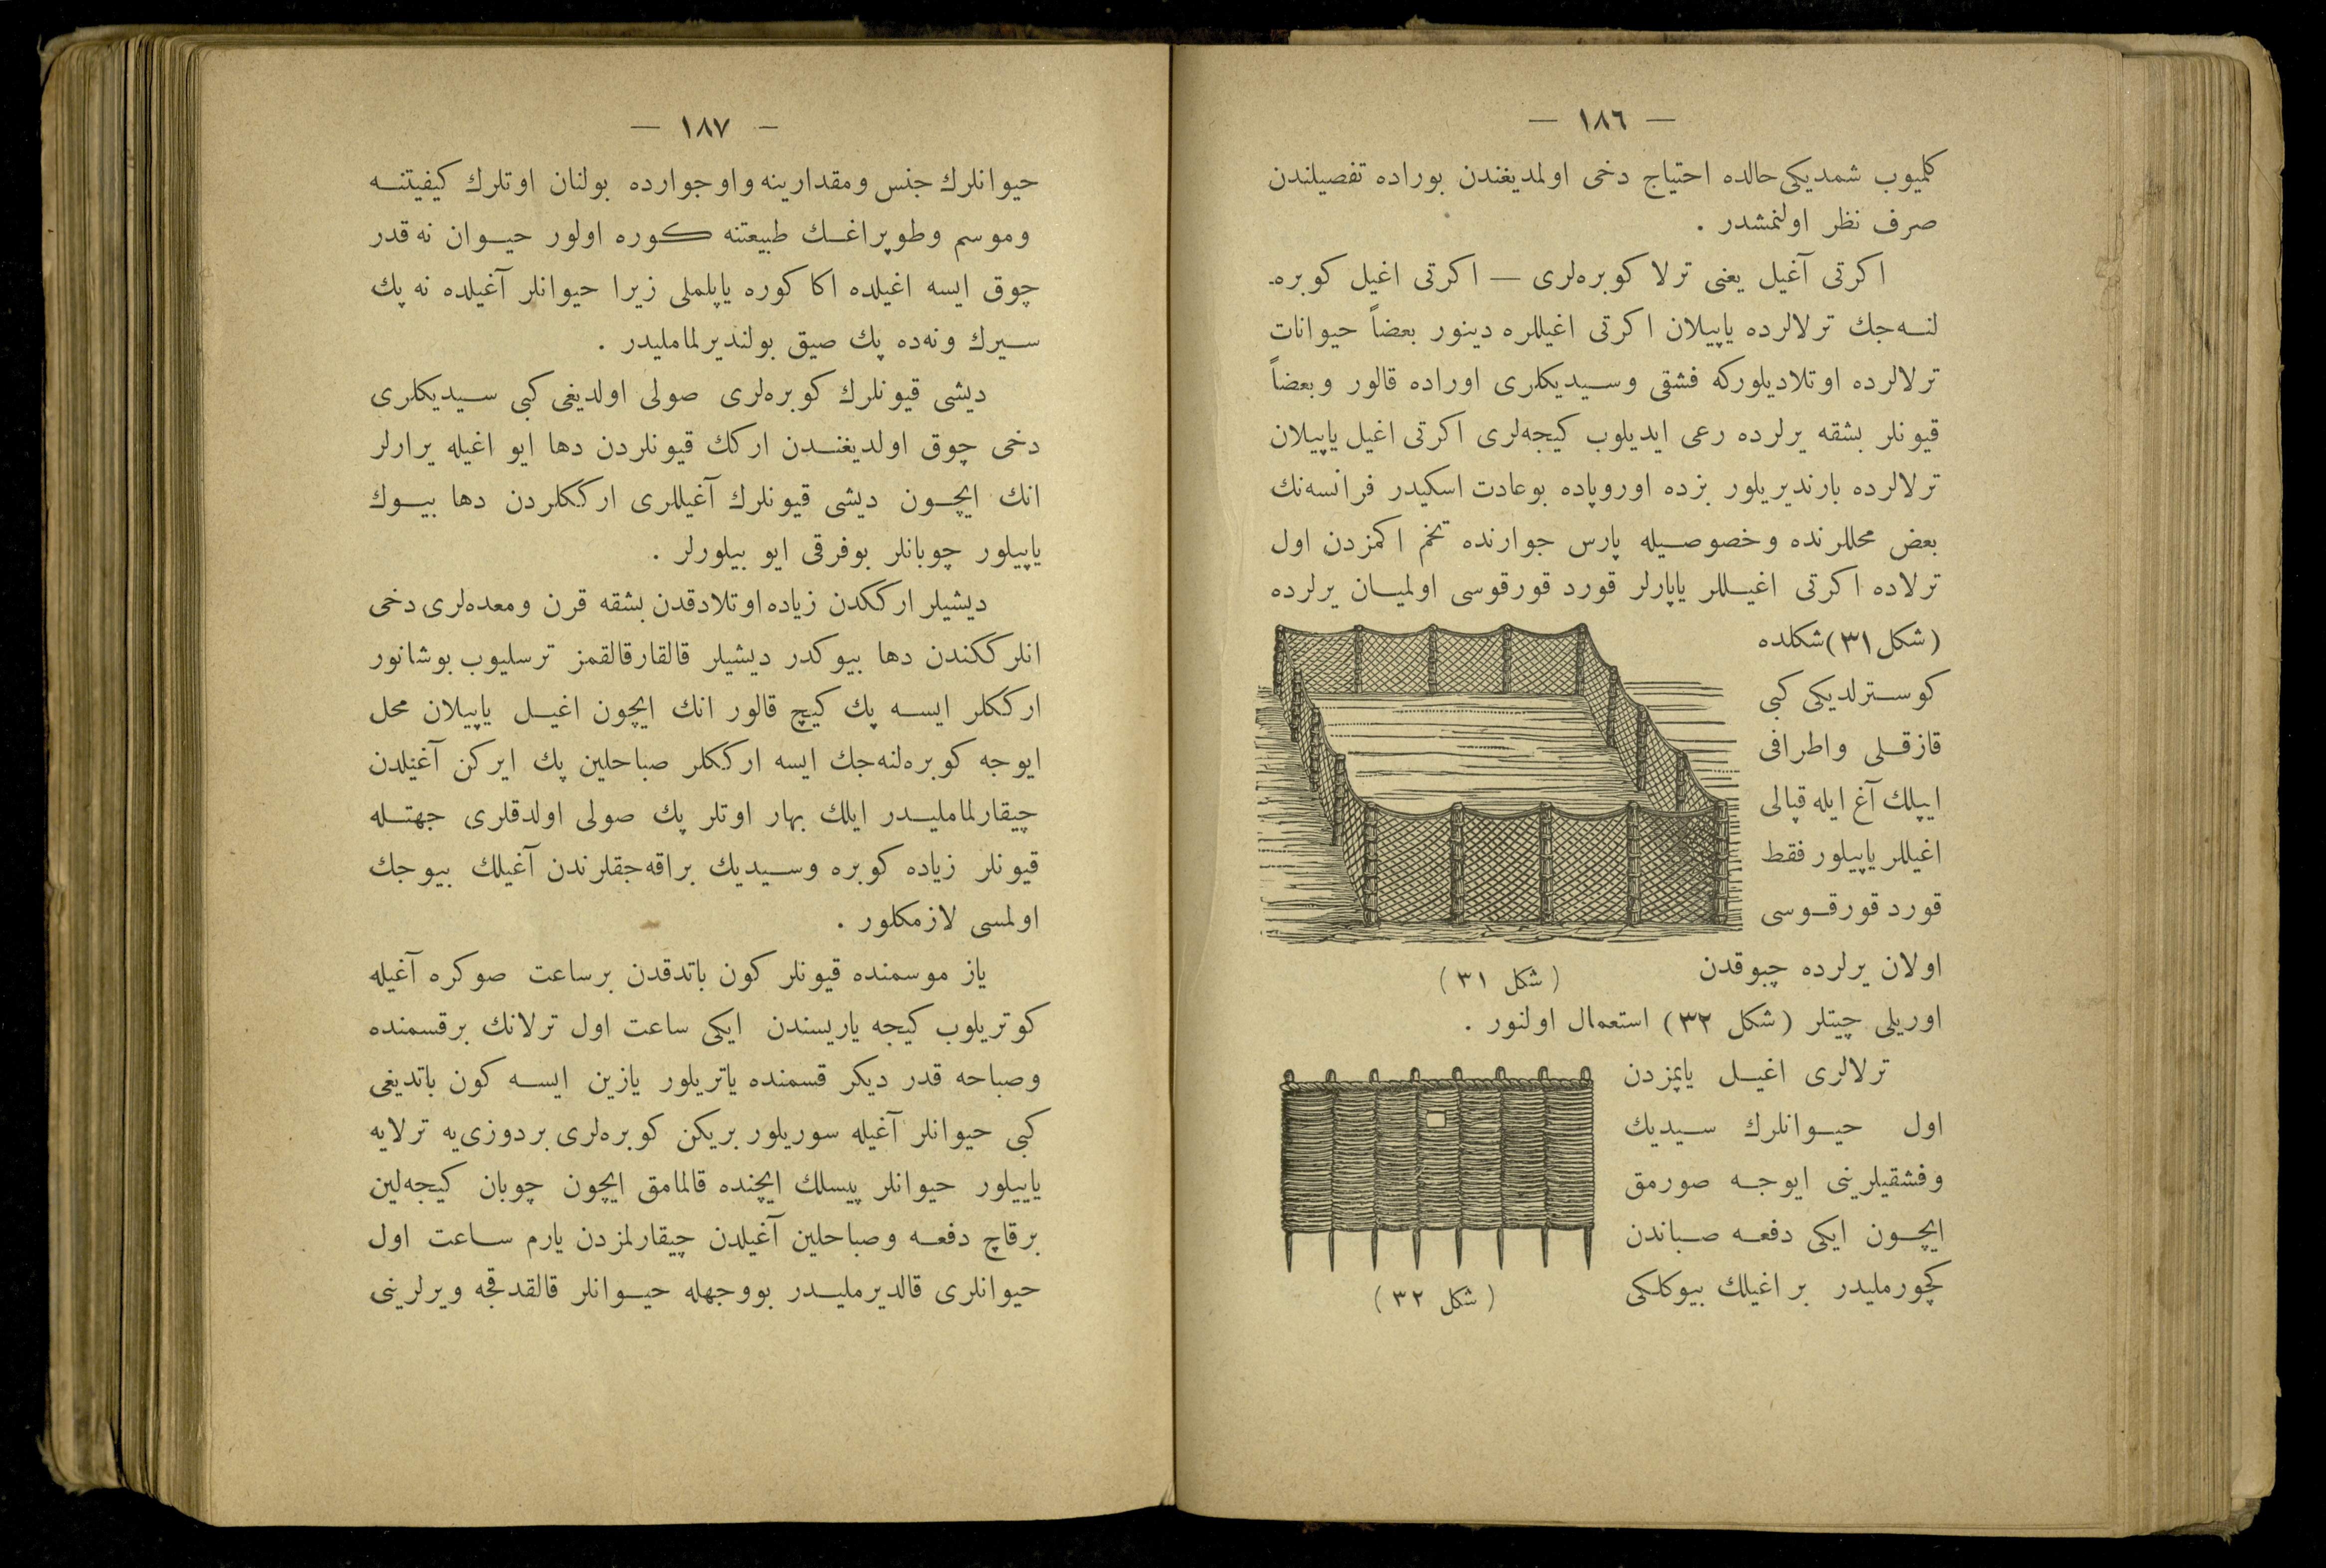 — ١٨٦ —
كلميوب شمديكی حالده احتياج دخی اولمديغندن بوراده تفصيلندن
صرف نظر اولنمشدر .
اكرتی آغيل يعنی ترلا كوبره‌لری — اكرتی اغيل كوبره‌
لنـه‌جك ترلالرده ياپيلان اكرتی اغيللره دينور بعضاً حيوانات
ترلالرده اوتلاديلوركه فشقی وسـيديكلری اوراده قالور وبعضاً
قيونلر بشقه يرلرده رعی ايديلوب كيجه‌لری اكرتی اغيل ياپيلان
ترلالرده بارنديريلور بزده اوروپاده بوعادت اسكيدر فرانسه‌نك
بعض محللرنده وخصوصـيله پارس جوارنده تخم اكمزدن اول
ترلاده اكرتی اغيـللر ياپارلر قورد قورقوسی اولميـان يرلرده
(شكل ٣١) شكلده
كوسـترلديكی كبی
قازقـلی واطرافی
ايپلك آغ ايله قپالی
اغيللر ياپيلور فقط
قورد قورقـوسی
اولان يرلرده چبوقدن
(شكل ٣١)
اوريلی چيتلر (شكل ٣٢) استعمال اولنور .
ترلالری اغيـل ياپمزدن
اول حيـوانلرك سـيديك
وفشقيلرينی ايوجـه صورمق
ايچـون ايكی دفعـه صـباندن
كچورمليدر بر اغيلك بيوكلكی
(شكل ٣٢)
— ١٨٧ —
حيوانلرك جنس ومقدارينه واوجوارده بولنان اوتلرك كيفيتنـه
وموسم وطوپراغـك طبيعتنه كوره اولور حيـوان نه قدر
چوق ايسه اغيلده اكا كوره ياپلملی زيرا حيوانلر آغيلده نه پك
سـيرك ونه‌ده پك صيق بولنديرلمامليدر .
ديشی قيونلرك كوبره‌لری صولی اولديغی كبی سـيديكلری
دخی چوق اولديغنـدن اركك قيونلردن دها ايو اغيله يرارلر
انك ايچـون ديشی قيونلرك آغيللری ارككلردن دها بيـوك
ياپيلور چوبانلر بوفرقی ايو بيلورلر .
ديشيلر ارككدن زياده اوتلادقدن بشقه قرن ومعده‌لری دخی
انلرككندن دها بيوكدر ديشيلر قالقارقالقمز ترسليوب بوشانور
ارككلر ايسـه پك كيچ قالور انك ايچون اغيـل ياپيلان محل
ايوجه كوبره‌لنه‌جك ايسه ارككلر صباحلين پك ايركن آغيلدن
چيقارلمامليـدر ايلك بهار اوتلر پك صولی اولدقلری جهتـله
قيونلر زياده كوبره وسـيديك براقه‌جقلرندن آغيلك بيوجك
اولمسی لازمكلور .
ياز موسمنده قيونلر كون باتدقدن برساعت صوكره آغيله
كوتريلوب كيجه ياريسندن ايكی ساعت اول ترلانك برقسمنده
وصباحه قدر ديكر قسمنده ياتريلور يازين ايسـه كون باتديغی
كبی حيوانلر آغيله سوريلور بريكن كوبره‌لری بردوزی‌يه ترلايه
ياييلور حيوانلر پيسلك ايچنده قالمامق ايچون چوبان كيجه‌لين
برقاچ دفعـه وصباحلين آغيلدن چيقارلمزدن يارم سـاعت اول
حيوانلری قالديرمليـدر بووجهله حيـوانلر قالقدقجه ويرلرينی